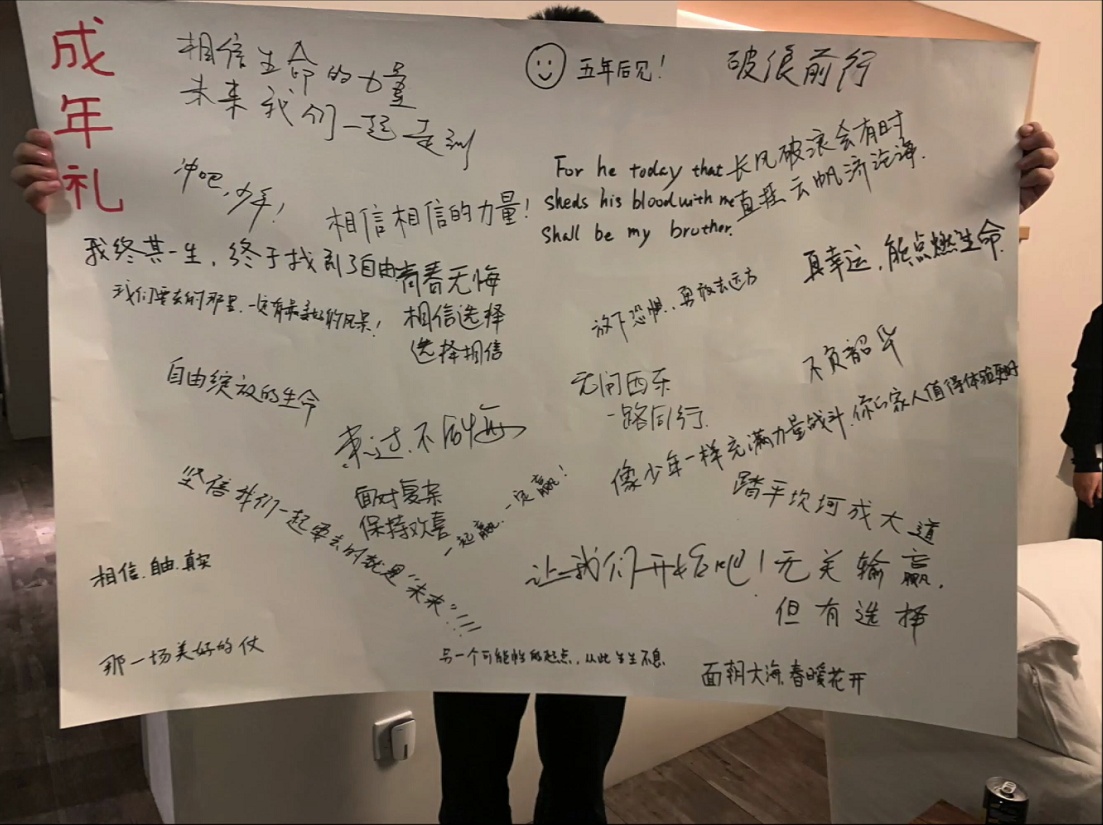 成年礼
相信生命的力量
未来我们一起走到
五年后见！
破浪前行
冲吧，少年！
相信相信的力量！
For he today that
sheds his blood with me
Shall be my brother.
长风破浪会有时
直挂云帆济沧海.
我终其一生，终于找到了自由
青春无悔
相信选择
选择相信
我们要去的那里，一定有最美好的风景！
放下恐惧，勇敢去远方
真幸运，能点燃生命.
自由绽放的生命
无问西东
一路同行.
不负韶华
来过，不后悔
像少年一样充满力量战斗，你的家人值得体验更好
面对复杂
保持欢喜
一起赢，一定赢！
踏平坎坷成大道
坚信我们一起要去的就是“未来”！！！！
相信.自由.真实
让我们开始吧！无关输赢，
但有选择
那一场美好的仗
另一个可能性的起点，从此生生不息.
面朝大海，春暖花开